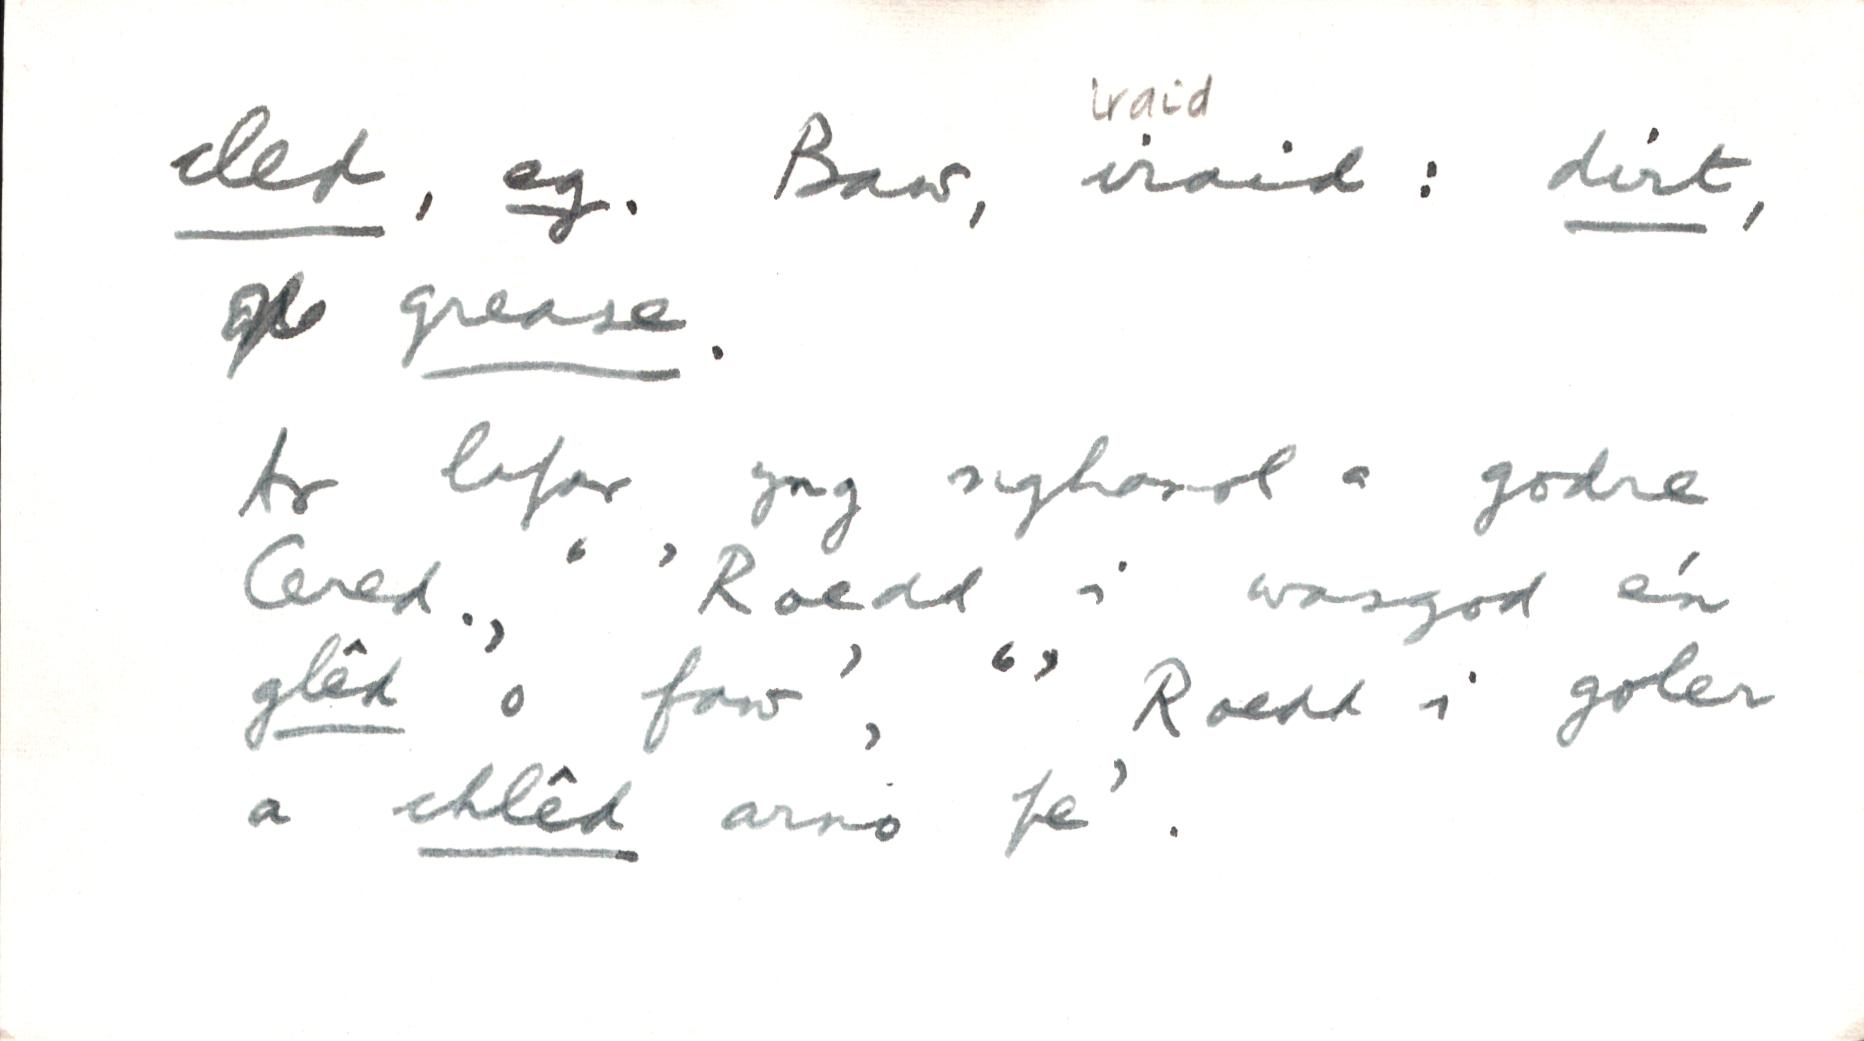 iraid
cled, eg. Baw, iraid : dirt,
grease.
Ar lafar yng nghanol a godre
Cered., ‘ ’Roedd i wasgod e'n
glêd o faw’, ‘’Roedd i goler
a chlêd arno fe’.